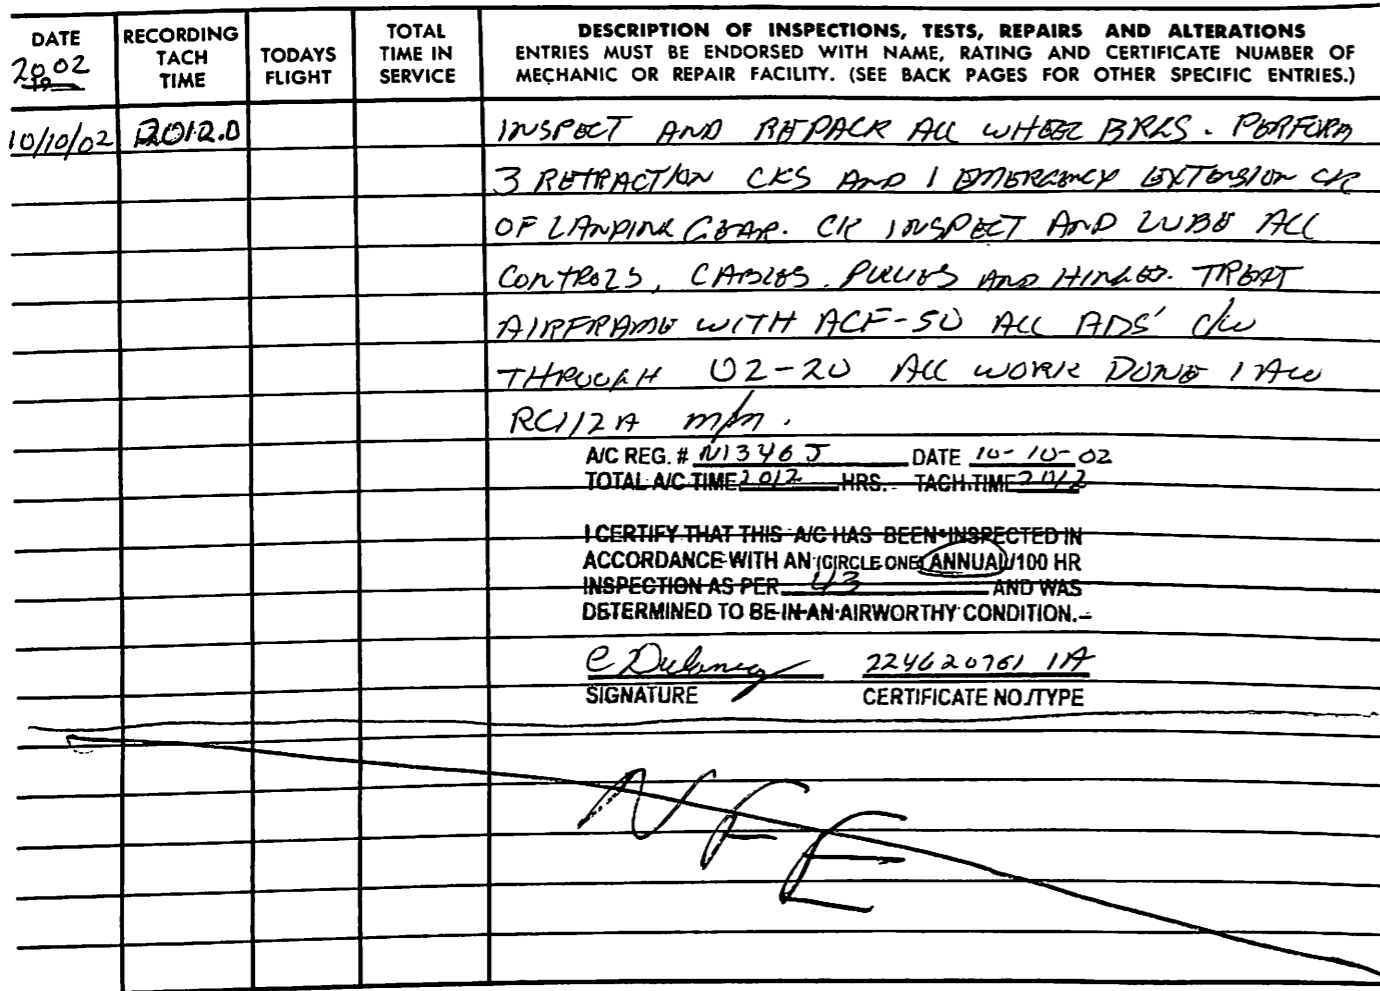 DATE
2002
RECORDING TACH TIME
TODAYS FLIGHT
TOTAL TIME IN SERVICE
DESCRIPTION OF INSPECTIONS, TESTS, REPAIRS AND ALTERATIONS
ENTRIES MUST BE ENDORSED WITH NAME, RATING AND CERTIFICATE NUMBER OF
MECHANIC OR REPAIR FACILITY. (SEE BACK PAGES FOR OTHER SPECIFIC ENTRIES.)
10/10/02 2012.0 INSPECT AND REPACK ALL WHEEL BRGS. PERFORM
3 RETRACTION CKS AND 1 EMERGENCY EXTENSION CK
OF LANDING GEAR. CK INSPECT AND LUBE ALL
CONTROLS, CABLES. PULLIES AND HINGES. TREAT
AIRFRAME WITH ACF-50 ALL ADS' C/W
THROUGH 02-20 ALL WORK DONE IAW
RC112A m/m.
A/C REG. # N1346J DATE 10-10-02
TOTAL A/C TIME 2012 HRS. TACH TIME 2012
I CERTIFY THAT THIS A/C HAS BEEN INSPECTED IN
ACCORDANCE WITH AN (CIRCLE ONE) ANNUAL/100 HR
INSPECTION AS PER 43 AND WAS
DETERMINED TO BE IN AN AIRWORTHY CONDITION.
224620761 IA
SIGNATURE CERTIFICATE NO./TYPE
NFE